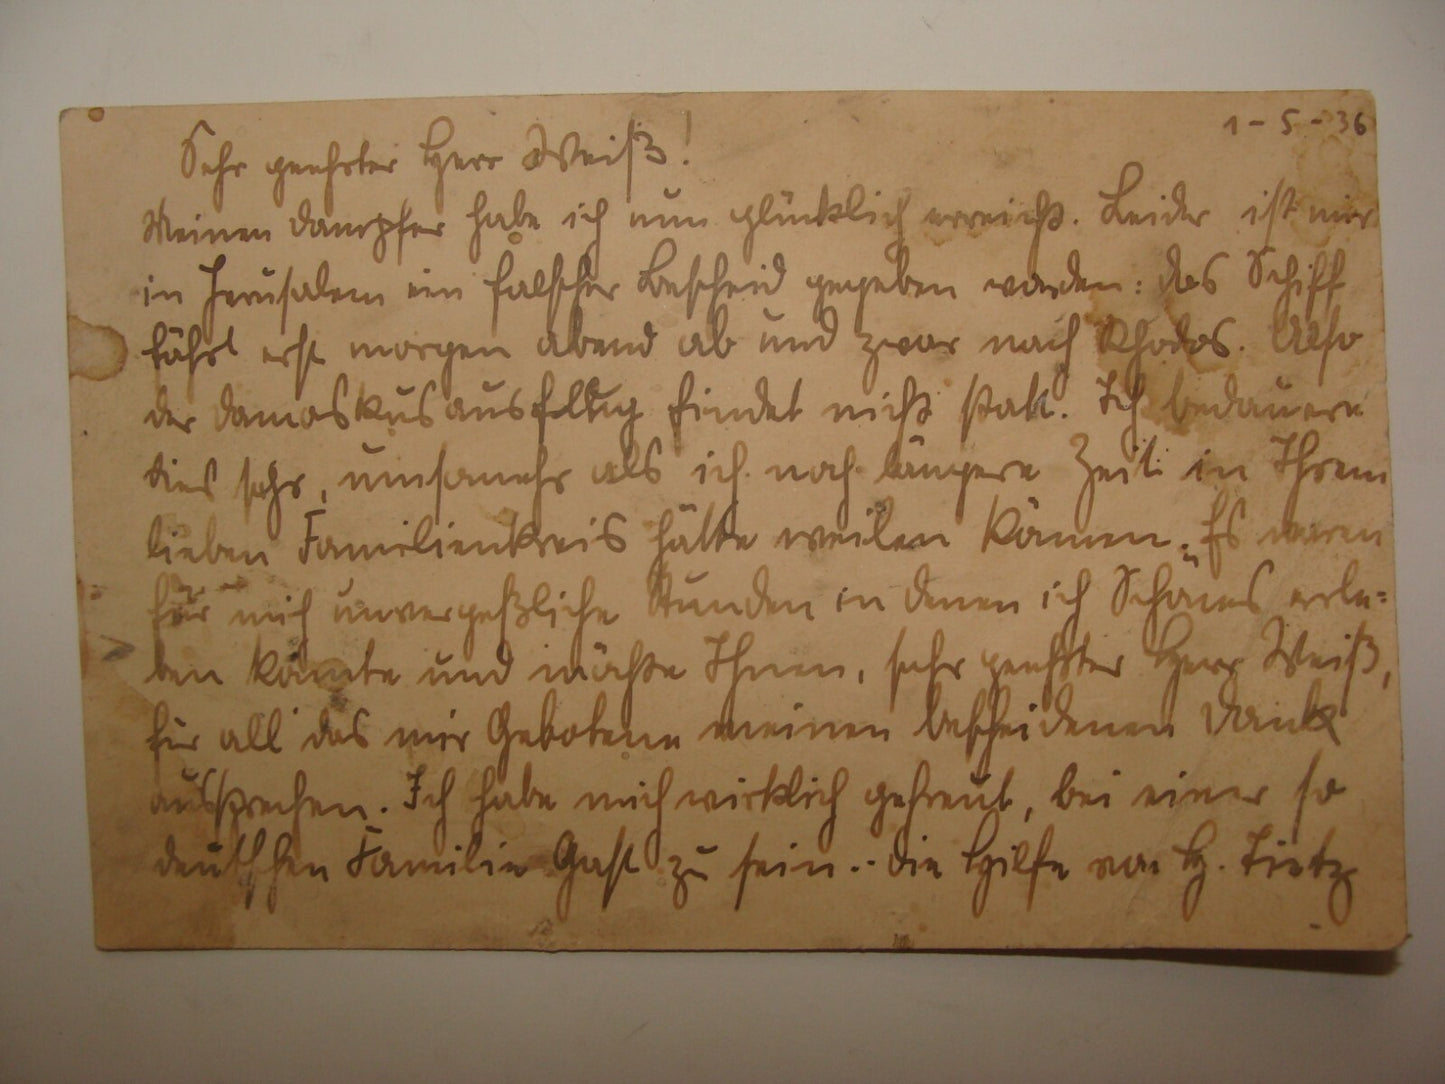 1-5-36
Sehr geehrter Herr Weiß!
Meinen Dampfer habe ich nun glücklich erreicht. Leider ist mir
in Jerusalem ein falscher Bescheid gegeben worden: das Schiff
fährt erst morgen abend ab und zwar nach Rhodos. Also
der Damaskusausflug findet nicht statt. Ich bedauere
dies sehr, umsomehr als ich noch längere Zeit in Ihrem
lieben Familienkreis hätte weilen können. Es waren
für mich unvergeßliche Stunden in denen ich Schönes erle=
ben konnte und möchte Ihnen, sehr geehrter Herr Weiß,
für all das mir Gebotene meinen bescheidenen Dank
aussprechen. Ich habe mich wirklich gefreut, bei einer so
deutschen Familie Gast zu sein. Die Hilfe von H. Tietz